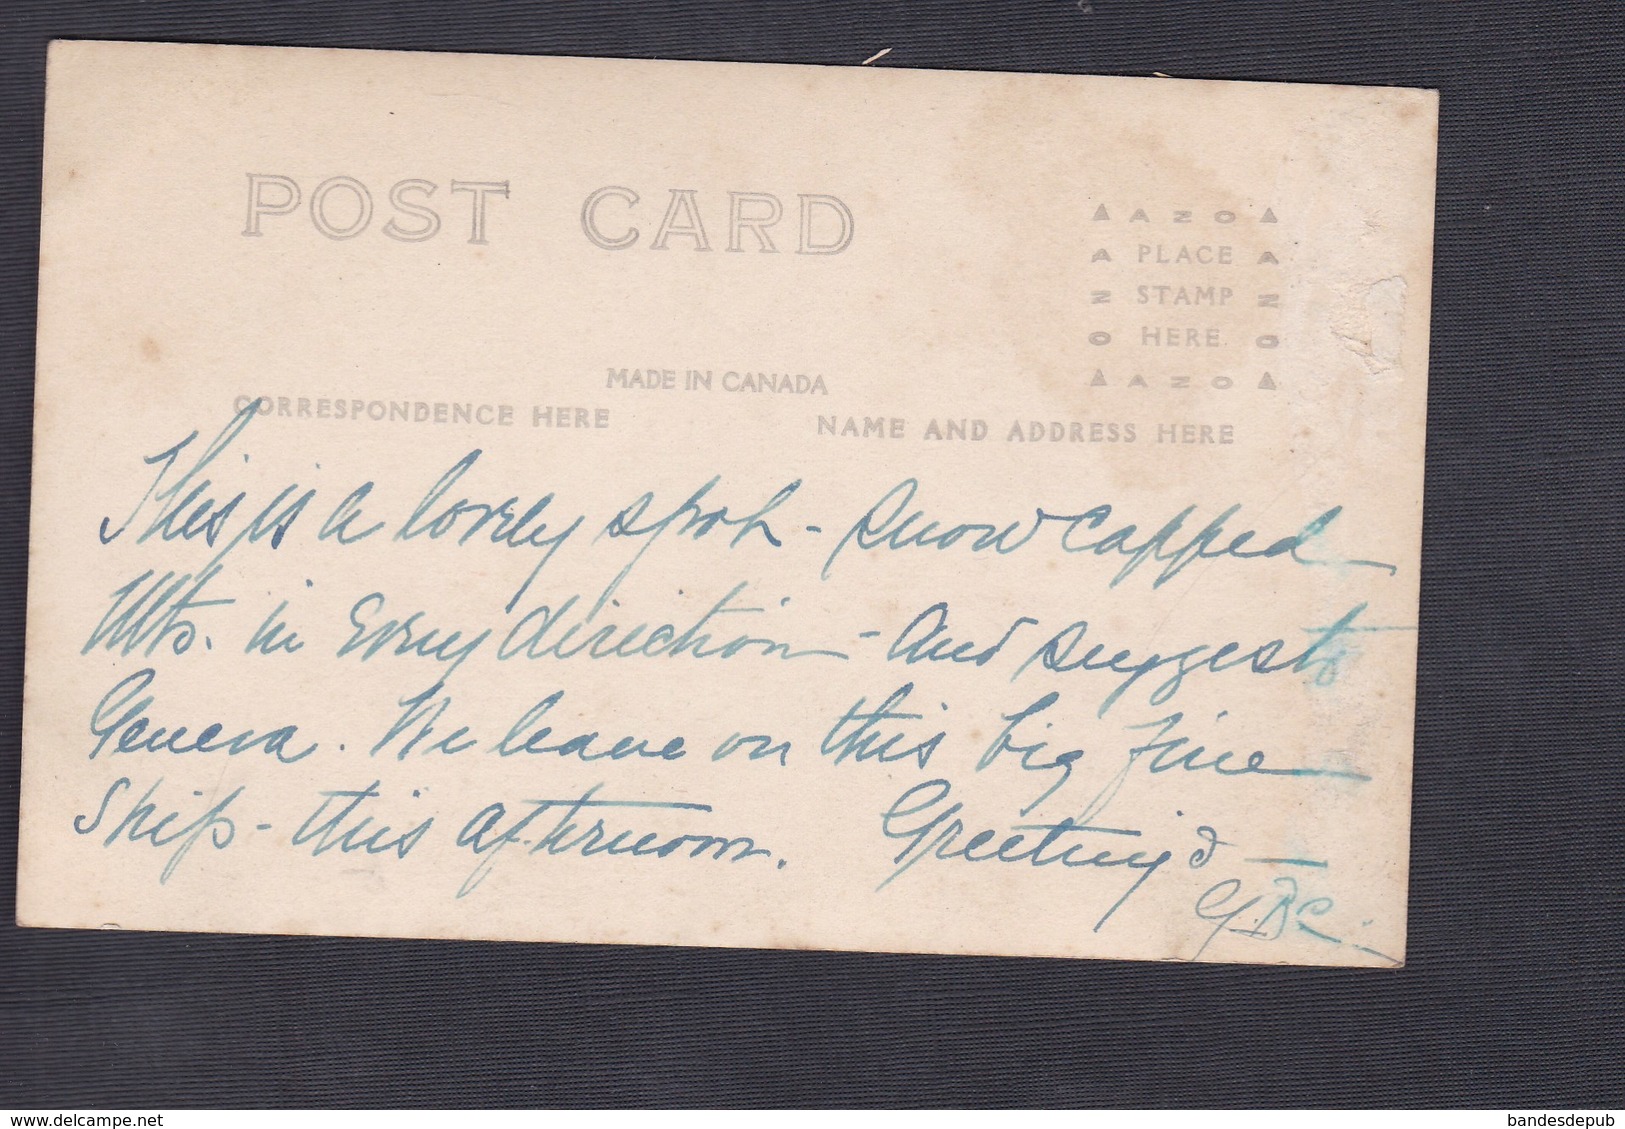 POST CARD
▲ A Z O ▲
A PLACE A
Z STAMP Z
O HERE O
▲ A Z O ▲
MADE IN CANADA
CORRESPONDENCE HERE
NAME AND ADDRESS HERE
This is a lovely spot - snow capped
Mts. in every direction - and suggests
Geneva. We leave on this big fine
ship - this afternoon. Greetings —
G.B.C.
delcampe.net
bandesdepub